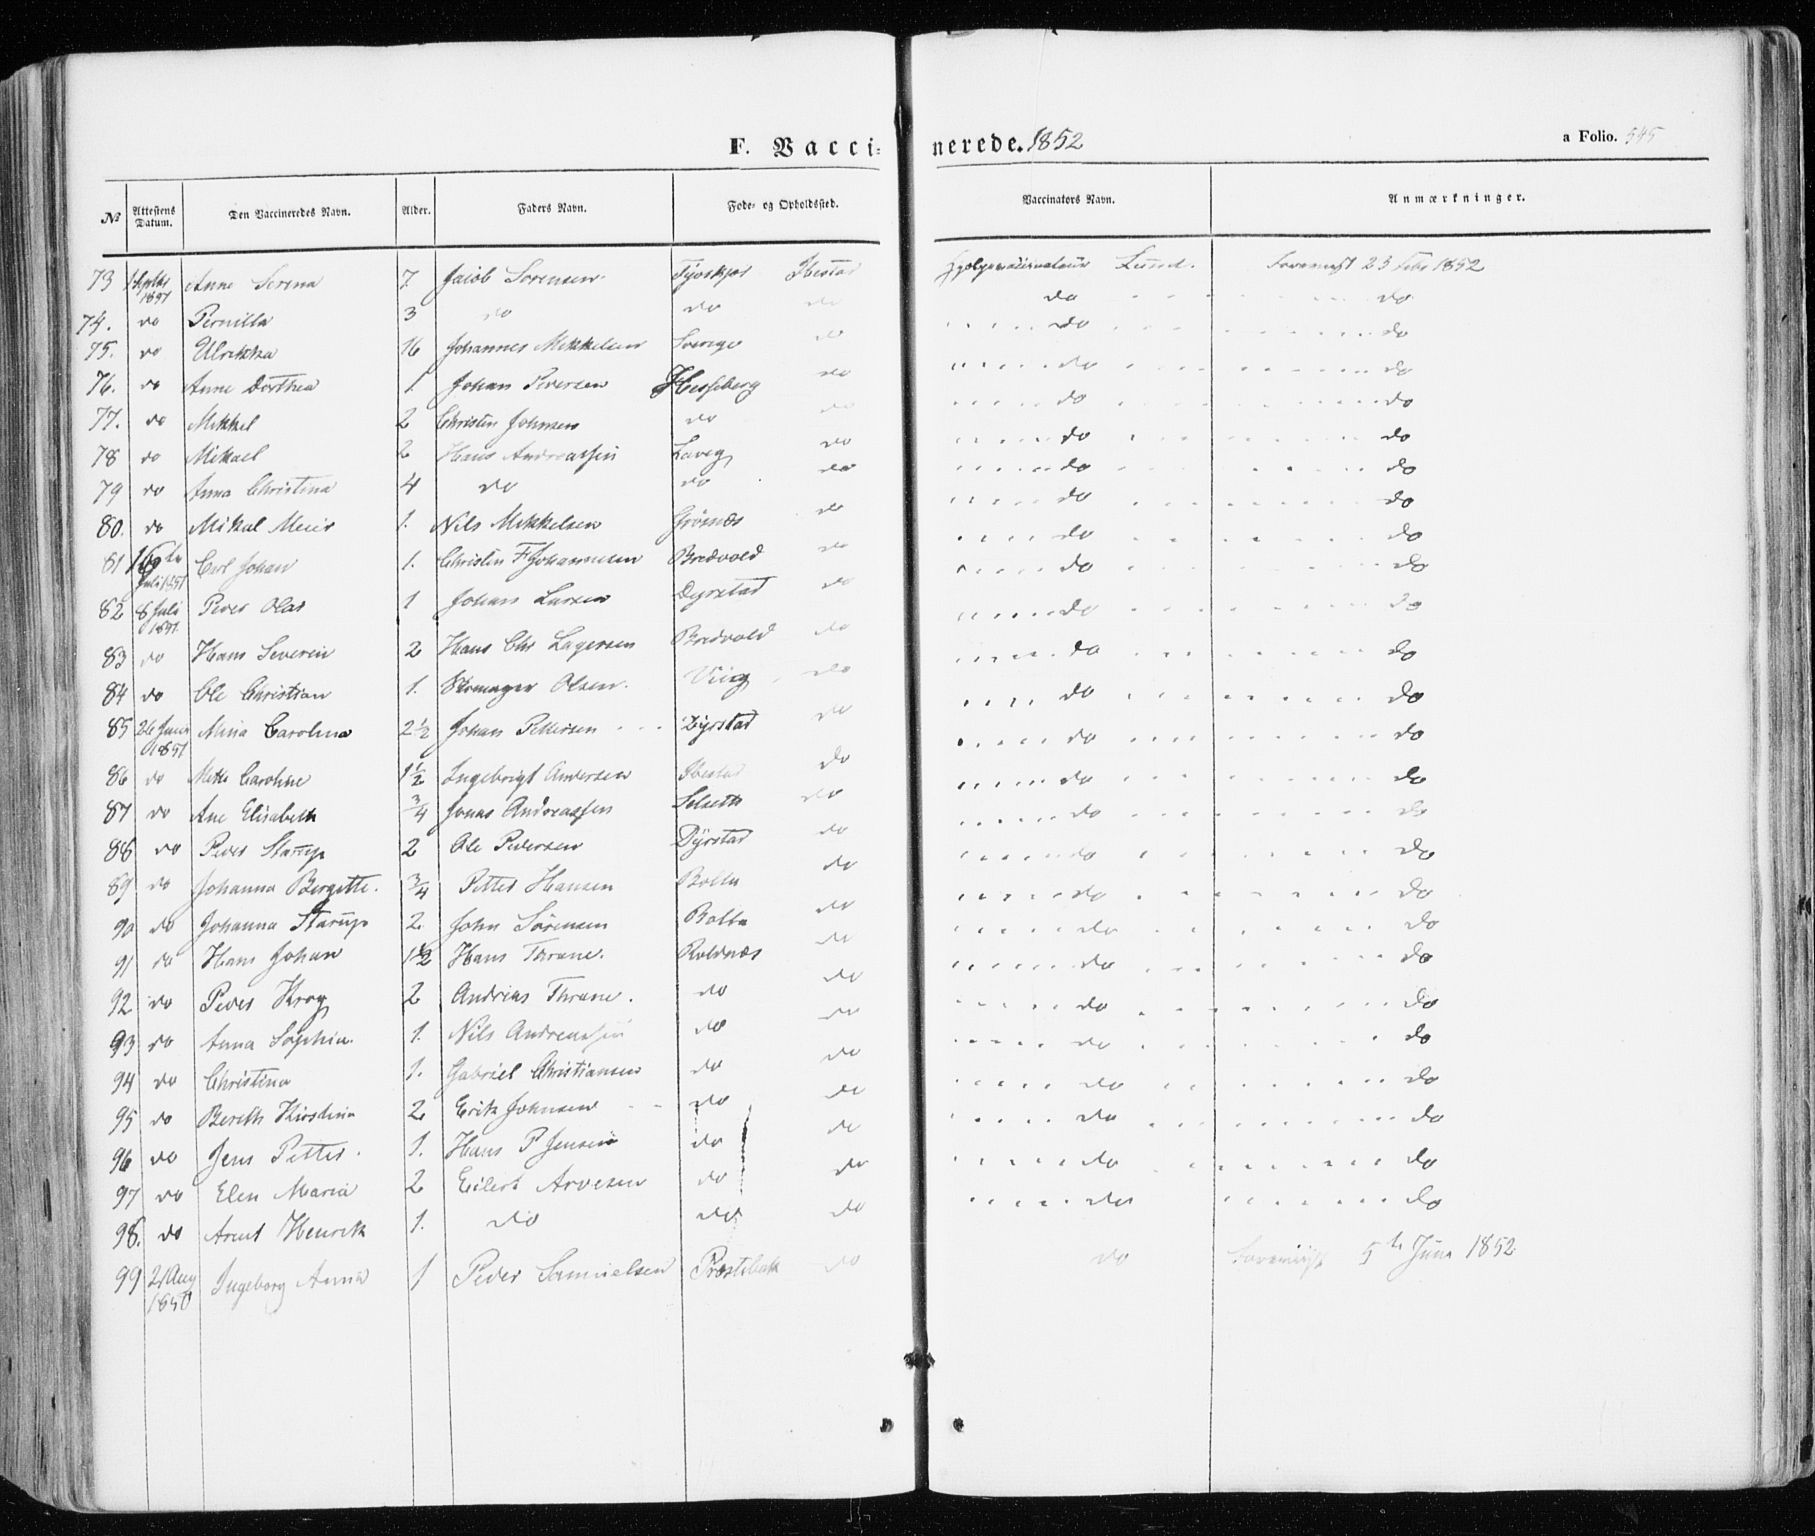 F. Vacci- nerede. 1852
a Folio. 545
№ Attestens Datum. Den Vaccineredes Navn. Alder. Faders Navn. Føde- og Opholdssted. Vaccinators Navn. Anmærkninger.
73 1 Septbr 1851 Anne Serena 7 Jacob Sørensen Ibestad Lund. 23 Febr 1852
74. do Pernilla 3 do do do do do
75. do Ulrikka 16 Johannes Mikkelsen Sverige do do do
76. do Anne Dorthea 1 Johan Pedersen Hesseberg do do do
77. do Mikkel 2 Christen Johnsen do do do do
78 do Mikael 2 Hans Andreassen Laveg do do do
79 do Anna Christina 4 do do do do do
80. do Mikal Meier 1. Nils Mikkelsen Grøsnæs do do do
81 16de Juli 1851 Carl Johan 1. Christen F Johannesen Bredvold do do do
82 8 Juli 1851 Peder Olai 1 Johan Larsen Dyrstad do do do
83 do Hans Severin 2 Hans Chr Lagersen Bredvold do do do
84 do Ole Christian 1. Olsen. Viig do do do
85 26 Juni 1851 Mina Carolina 2½ Johan Pettersen Dyrstad do do do
86 do Mette Caroline 1½ Ingebrigt Andersen Ibestad do do do
87 do Ane Elisabeth ¾ Jonas Andreassen Selseth do do do
88 do Peder Starup 2 Ole Pedersen Dyrstad do do do
89 do Johanna Bergitte. ¾ Petter Hansen Bolla do do do
90 do Johanna Starup 2. John Sørensen Bolla do do do
91 do Hans Johan 1½ Hans Thrane. Roldnæs do do do
92 do Peder Krog 2 Andreas Thrane. do do do do
93 do Anna Sophia. 1. Nils Andreassen do do do do
94 do Christina 1. Gabriel Christiansen do do do do
95 do Bereth Kirstina 2 Erik Johnsen do do do do
96 do Jens Petter. 1. Hans P Jensen do do do do
97 do Elen Maria 2 Eilert Arvesen do do do do
98. do Arent Henrik 1. do do do do do
99 21 Aug 1850 Ingeborg Anna 1 Peder Samuelsen Prestebak do do 5te Juni 1852